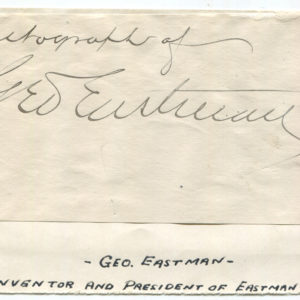 utograph of
Geo Eastman
- GEO. EASTMAN -
NVENTOR AND PRESIDENT OF EASTMAN